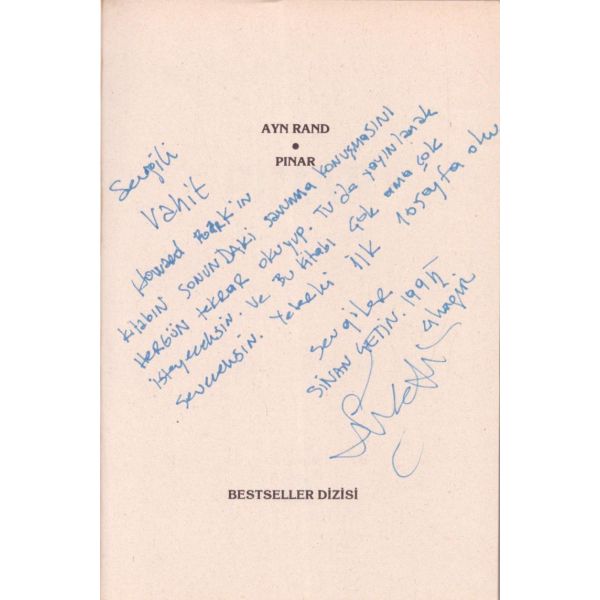 AYN RAND
•
PINAR
Sevgili
Vahit
Howard Roark'ın
kitabın sonundaki savunma konuşmasını
HERGÜN tekrar okuyup. TV'de yayınlamak
isteyeceksin. ve Bu kitabı çok ama çok
seveceksin. Yeterki ilk 10 sayfa oku
sevgiler
SİNAN ÇETİN. 1997
BESTSELLER DİZİSİ